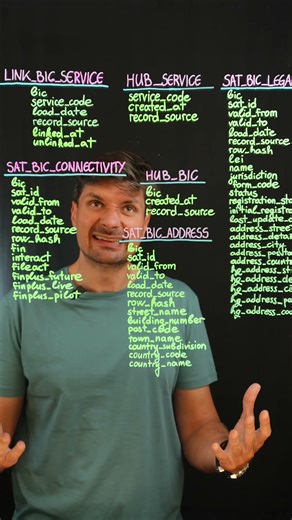 LINK_BIC_SERVICE
bic
service_code
load_date
record_source
linked_at
unlinked_at
HUB_SERVICE
service_code
created_at
record_source
SAT_BIC_LEGA
bic
sat_id
valid_from
valid_to
load_date
record_source
row_hash
lei
name
jurisdiction
form_code
status
registration_sta
initial_registra
last_update_da
address_street
address_detai
address_city
address_postal
address_countr
hq_address_st
hq_address_de
hq_address_ci
hq_address_po
hq_address_cou
SAT_BIC_CONNECTIVITY
bic
sat_id
valid_from
valid_to
load_date
record_source
row_hash
fin
interact
fileact
finplus_future
finplus_live
finplus_pilot
HUB_BIC
bic
created_at
record_source
SAT_BIC_ADDRESS
bic
sat_id
valid_from
valid_to
load_date
record_source
row_hash
street_name
building_number
post_code
town_name
country_subdivision
country_code
country_name